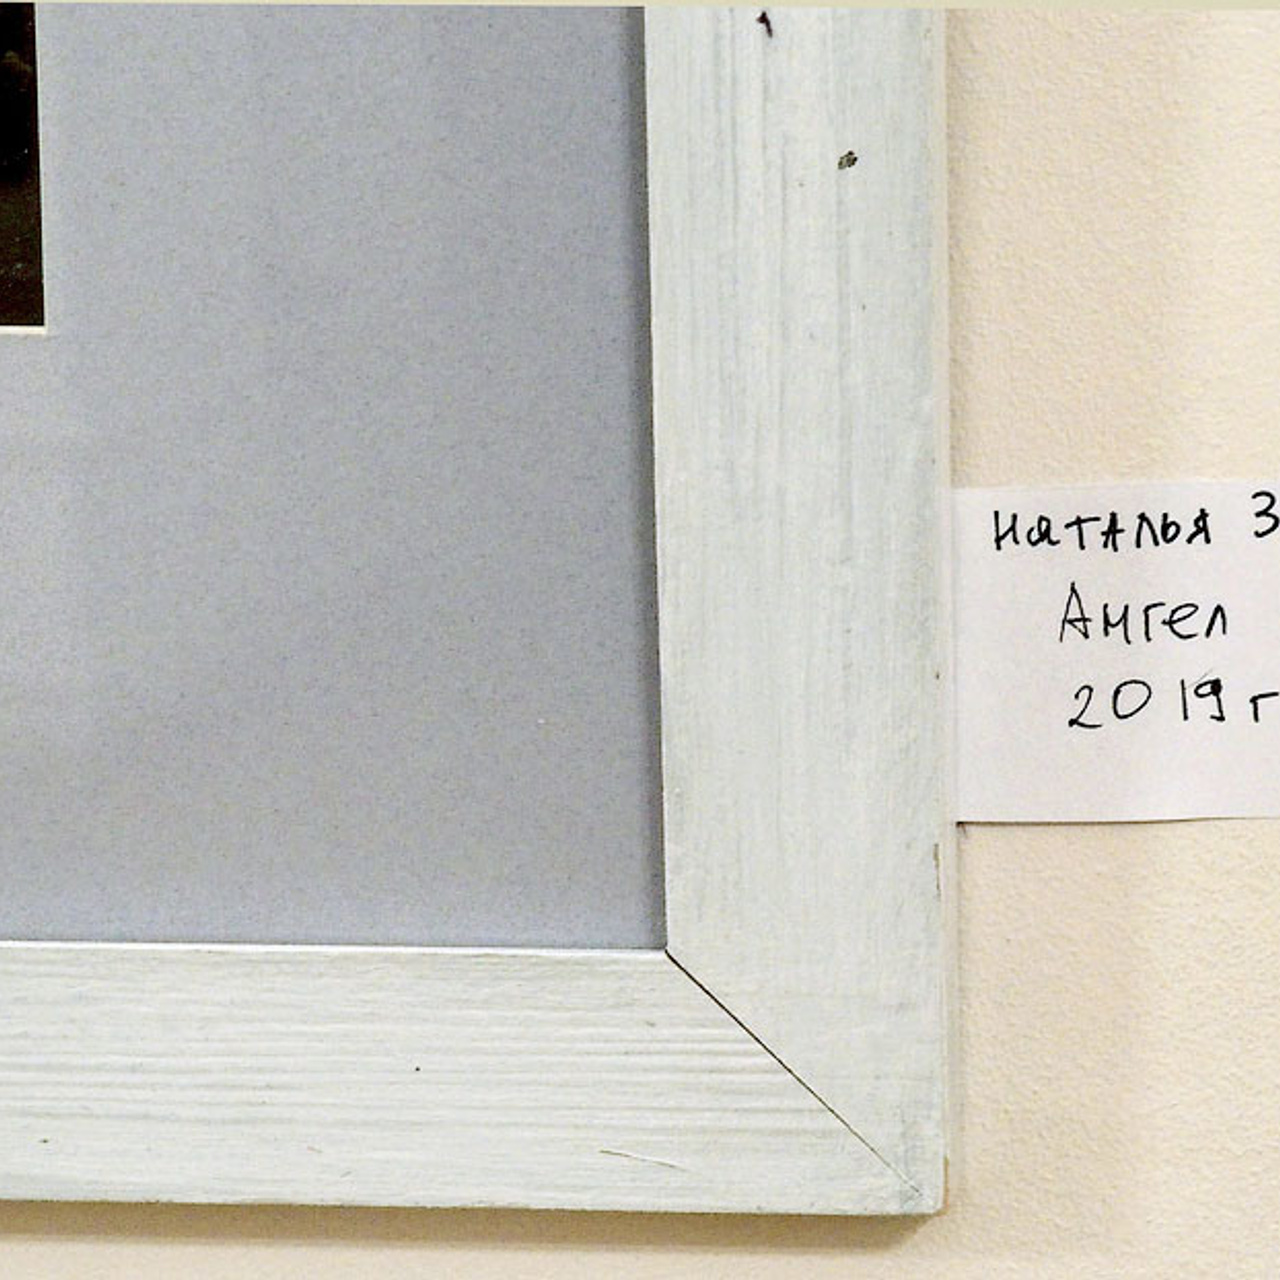 Наталья З
Ангел
2019 г